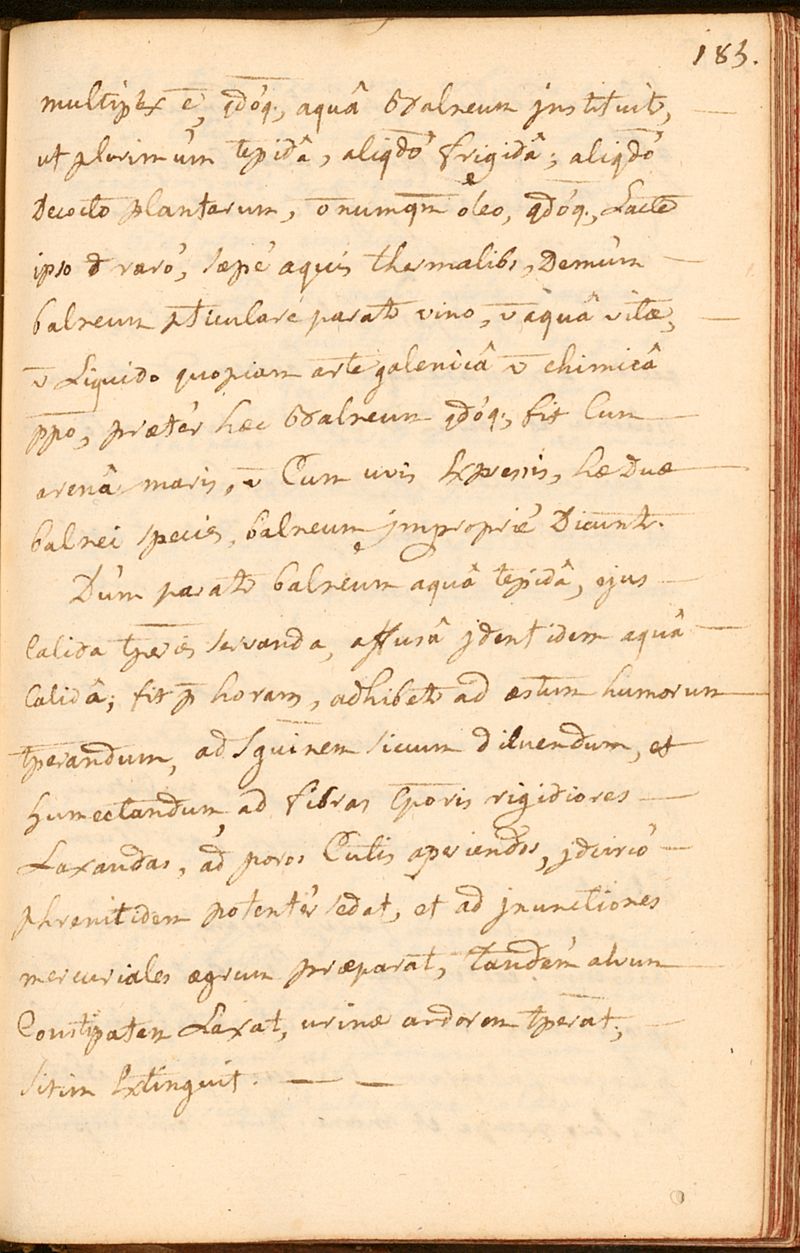 183.
multiplex ē, qdóq;, aquâ Balneum jnstituit,
ut plurimùm tepidâ, aliqdó frigidâ; aliqdó
Decocto plantarum, ōnumqm oleo, qdóq;, Lacte
ipso đ raró, sæpé aquis thermalibs, Demùm
balneum pticularé parat vino, v̄ aquâ vitæ,
v̄ Liquido quopiam arte galenicâ v̄ chimicâ
ppo, prætér hæc Balneum qdóq; fit Cum
arenâ maris, v̄ Cum uvis Expressis, hæ Duæ
balnei species, balneum jmproprié Dicunt.
Dùm parat balneum aquâ tepidâ, ejus
Calida tperies servanda, affusâ jdentidem aquâ
Calidâ; fit p̄ horam, adhibet ad æstum humorum
tperandum, ad Sguinem siccum diluendum, et
humectandum, ad fibras Cporis rigidiores
Laxandas, ad poros Cutis aperiendos, jdcircó
phrenitidem potentér sedat, et ad jnunctiones
mercuriales ægrum præparat, tandém alvum
Constipatam Laxat, urinæ ardorem tperat;
sitim Extinguit.